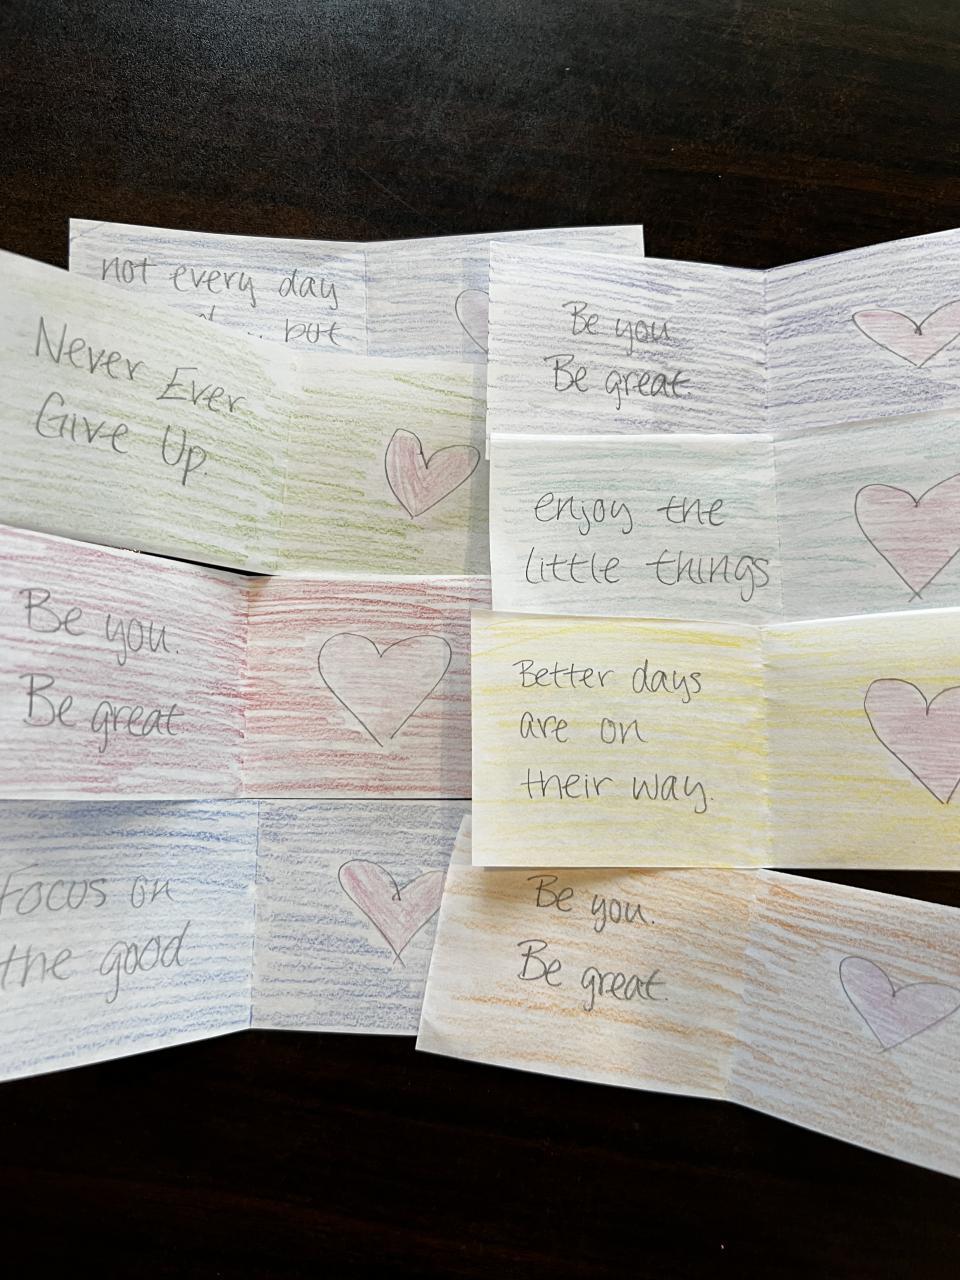 not every day
but
Never Ever
Give Up.
Be you.
Be great.
Focus on
the good
Be you.
Be great.
enjoy the
little things
Better days
are on
their way.
Be you.
Be great.